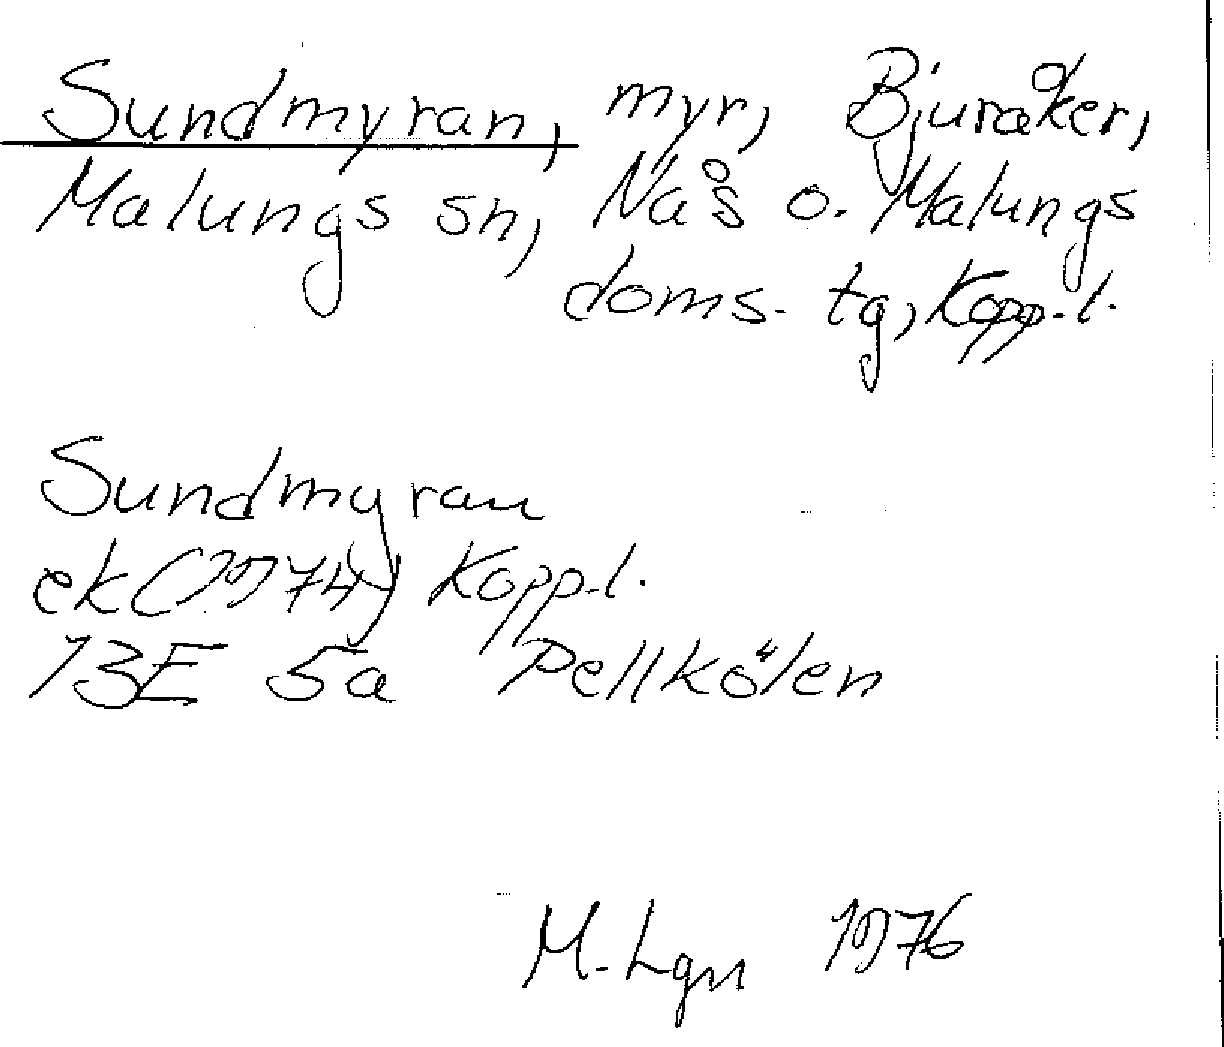 Sundmyran, myr, Bjuråker,
Malungs sn, Nås o. Malungs
doms. tg, Kopp.l.
Sundmyran
ek (1974) Kopp.l.
13E 5a Pellkölen
M. Lgn 1976